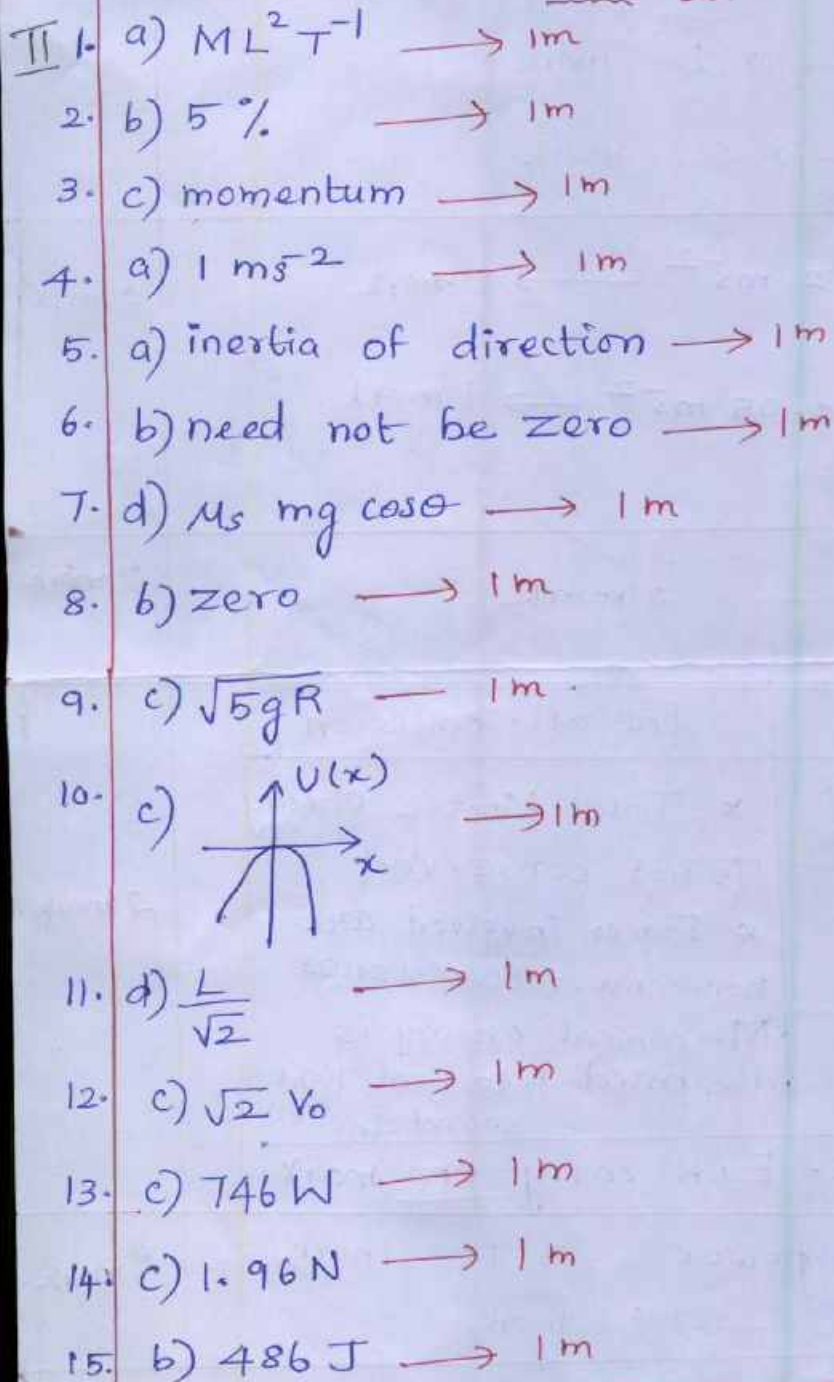 II 1. a) ML²T⁻¹ → 1m
2. b) 5 % → 1m
3. c) momentum → 1m
4. a) 1 ms⁻² → 1m
5. a) inertia of direction → 1m
6. b) need not be zero → 1m
7. d) μs mg cosθ → 1m
8. b) zero → 1m
9. c) √5gR — 1m.
10. c) U(x) x → 1m
11. d) L/√2 → 1m
12. c) √2 V₀ → 1m
13. c) 746 W → 1m
14. c) 1.96 N → 1m
15. b) 486 J → 1m